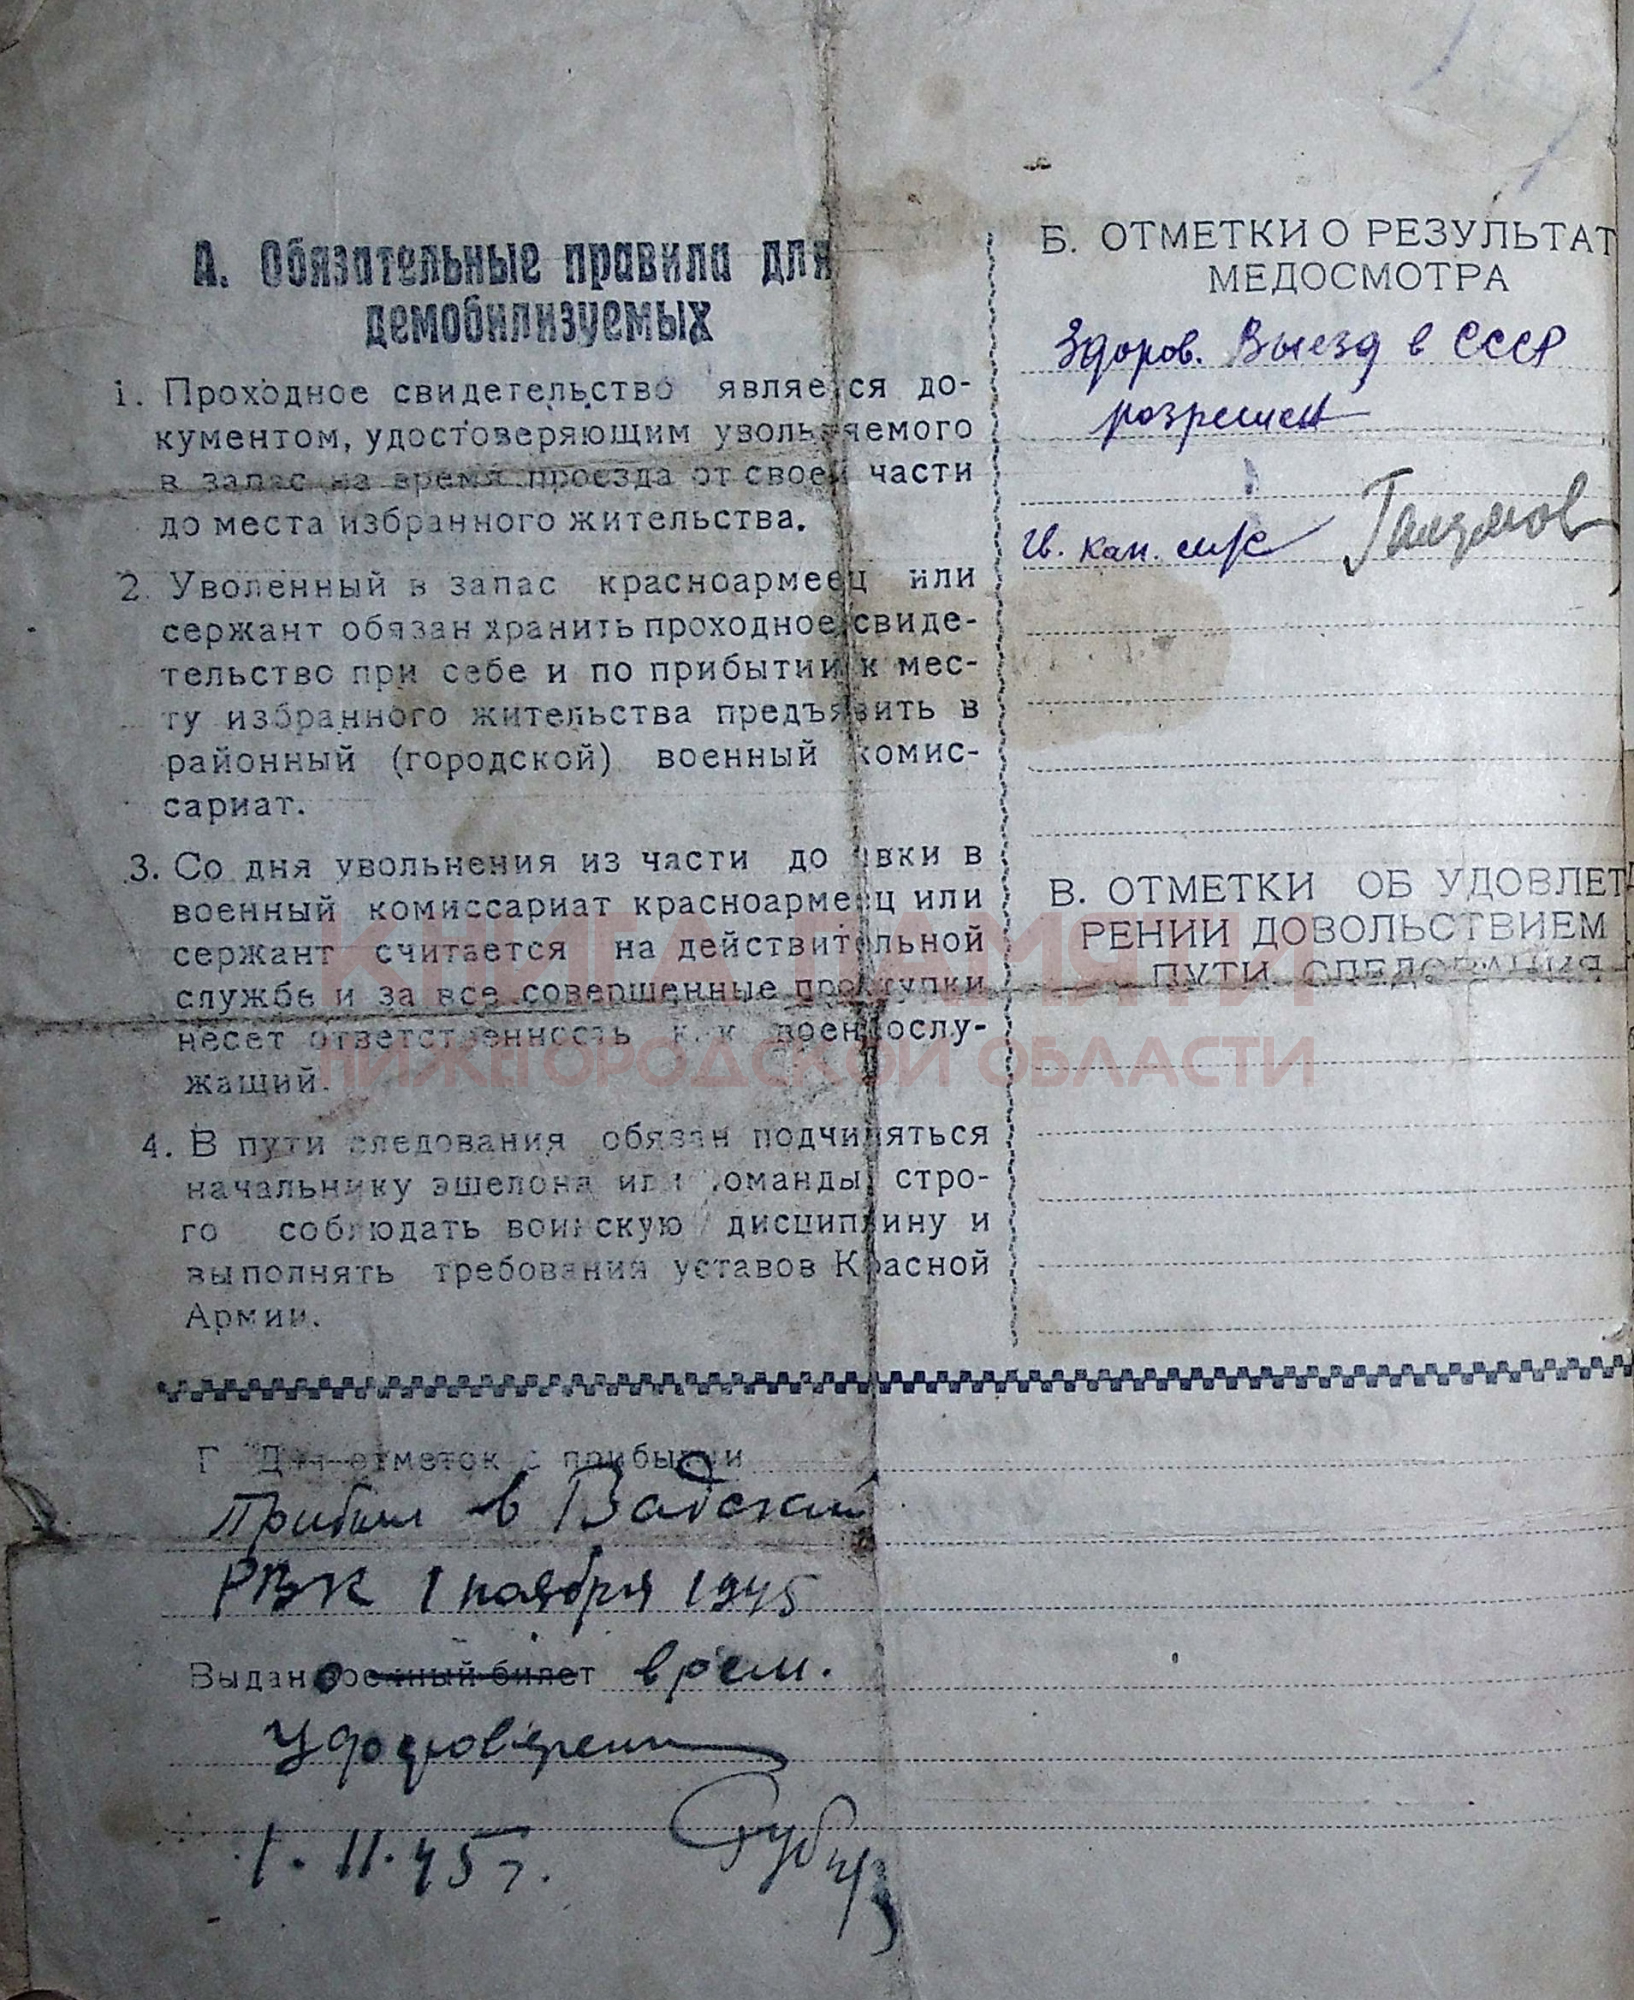 А. Обязательные правила для
демобилизуемых
1. Проходное свидетельство является до-
кументом, удостоверяющим увольняемого
в запас на время проезда от своей части
до места избранного жительства.
2. Уволенный в запас красноармеец или
сержант обязан хранить проходное свиде-
тельство при себе и по прибытии к мес-
ту избранного жительства предъявить в
районный (городской) военный комис-
сариат.
3. Со дня увольнения из части до явки в
военный комиссариат красноармеец или
сержант считается на действительной
службе и за все совершенные проступки
несет ответственность как военнослу-
жащий.
4. В пути следования обязан подчиняться
начальнику эшелона или команды, стро-
го соблюдать воинскую дисциплину и
выполнять требования уставов Красной
Армии.
Б. ОТМЕТКИ О РЕЗУЛЬТАТ
МЕДОСМОТРА
Здоров. Выезд в СССР
разрешен
гв. кап. м/с
В. ОТМЕТКИ ОБ УДОВЛЕТ
РЕНИИ ДОВОЛЬСТВИЕМ
ПУТИ СЛЕДОВАНИЯ
Г Для отметок о прибытии
Прибыл в Вадский
РВК 1 ноября 1945
Выдано военный билет врем.
удостоверение
1.11.45 г.
КНИГА ПАМЯТИ
НИЖЕГОРОДСКОЙ ОБЛАСТИ